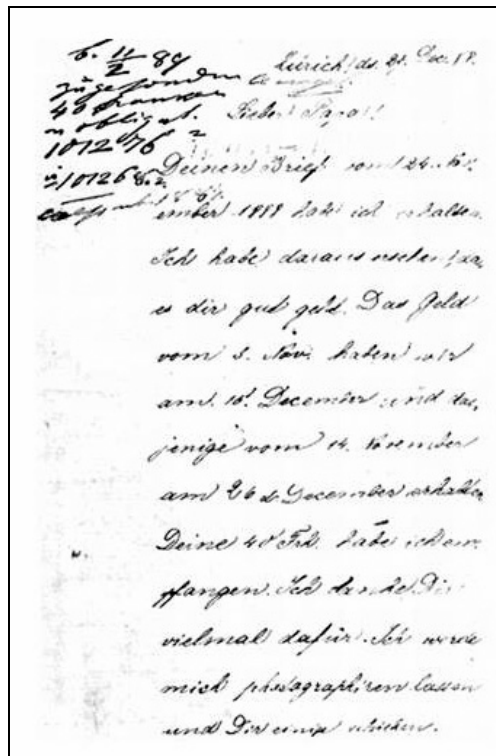 b. 11/2 89
zugesonden
40 Franken
u obligat.
101276
Zürich, ds. 21. Dec. 18
Lieber Papa!
Deinen Brief vom 24. Nov-
ember 1888 habe ich erhalten.
Ich habe daraus ersehen, das
es dir gut geht. Das Geld
vom 3. Nov. haben wir
am. 10t. December und das
jenige vom 14. November
am 26 d. December erhalten
Deine 40 Frk. habe ich em
pfangen. Ich danke Dir
vielmal dafür. Ich werde
mich photographiren lassen
und Dir einige schicken.